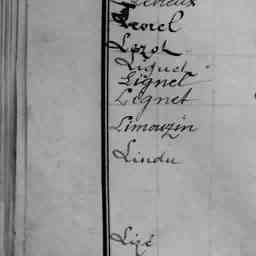 Levrel
Lezot
Liguet
Lignel
Lignet
Limouzin
Lindu
Lizé